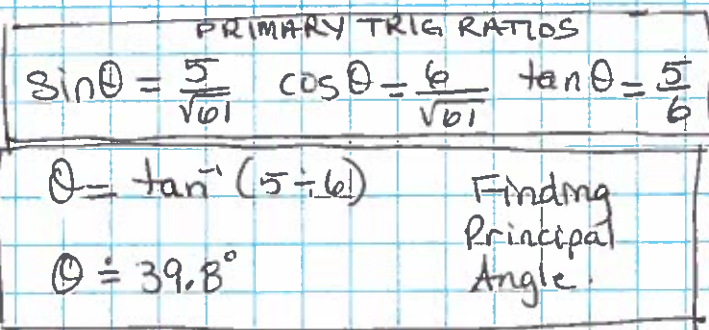 PRIMARY TRIG RATIOS
sinθ = 5/√61 cosθ = 6/√61 tanθ = 5/6
θ = tan⁻¹ (5÷6) Finding
Principal
θ ≐ 39.8° Angle.